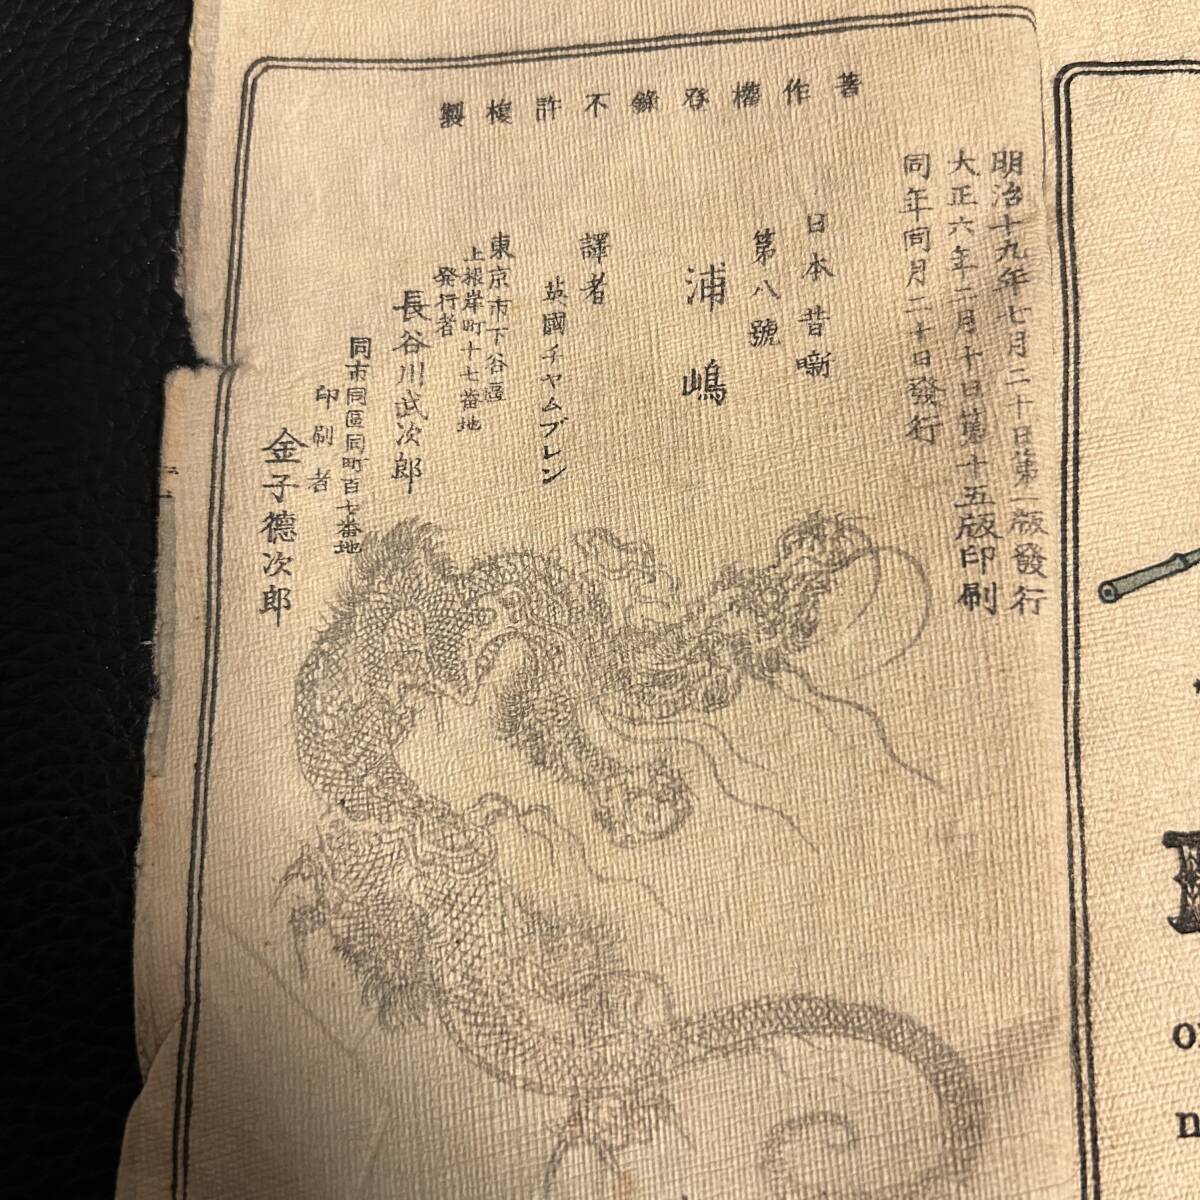 著作權登錄不許複製
明治十九年七月二十日第一版發行
大正六年二月十日第十五版印刷
同年同月二十日發行
日本昔噺
第八號
浦嶋
譯者
英國チヤムブレン
東京市下谷區
上根岸町十七番地
發行者
長谷川武次郎
同市同區同町百七番地
印刷者
金子德次郎